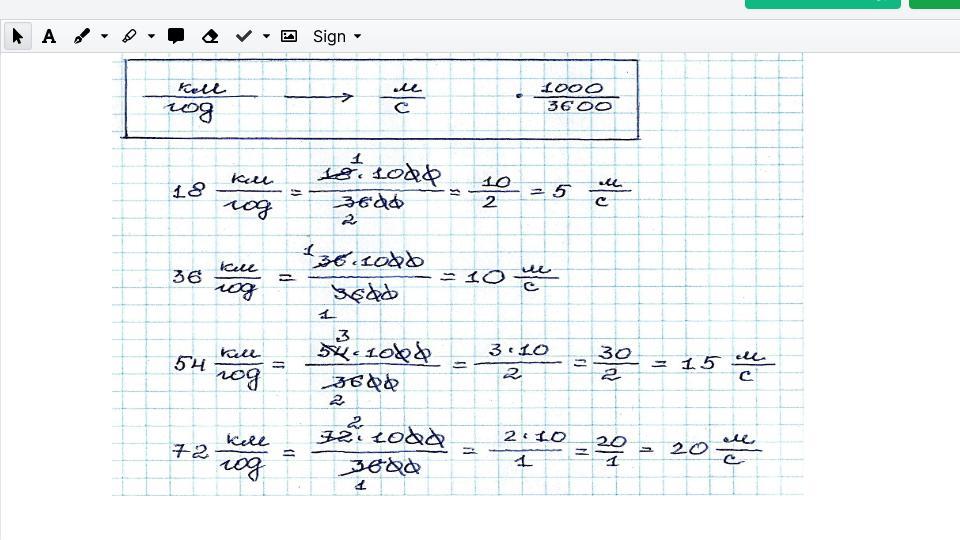 Sign
км/год → м/с · 1000/3600
18 км/год = 18·1000/3600 = 10/2 = 5 м/с
1
2
36 км/год = 36·1000/3600 = 10 м/с
1
1
54 км/год = 54·1000/3600 = 3·10/2 = 30/2 = 15 м/с
3
2
72 км/год = 72·1000/3600 = 2·10/1 = 20/1 = 20 м/с
2
1